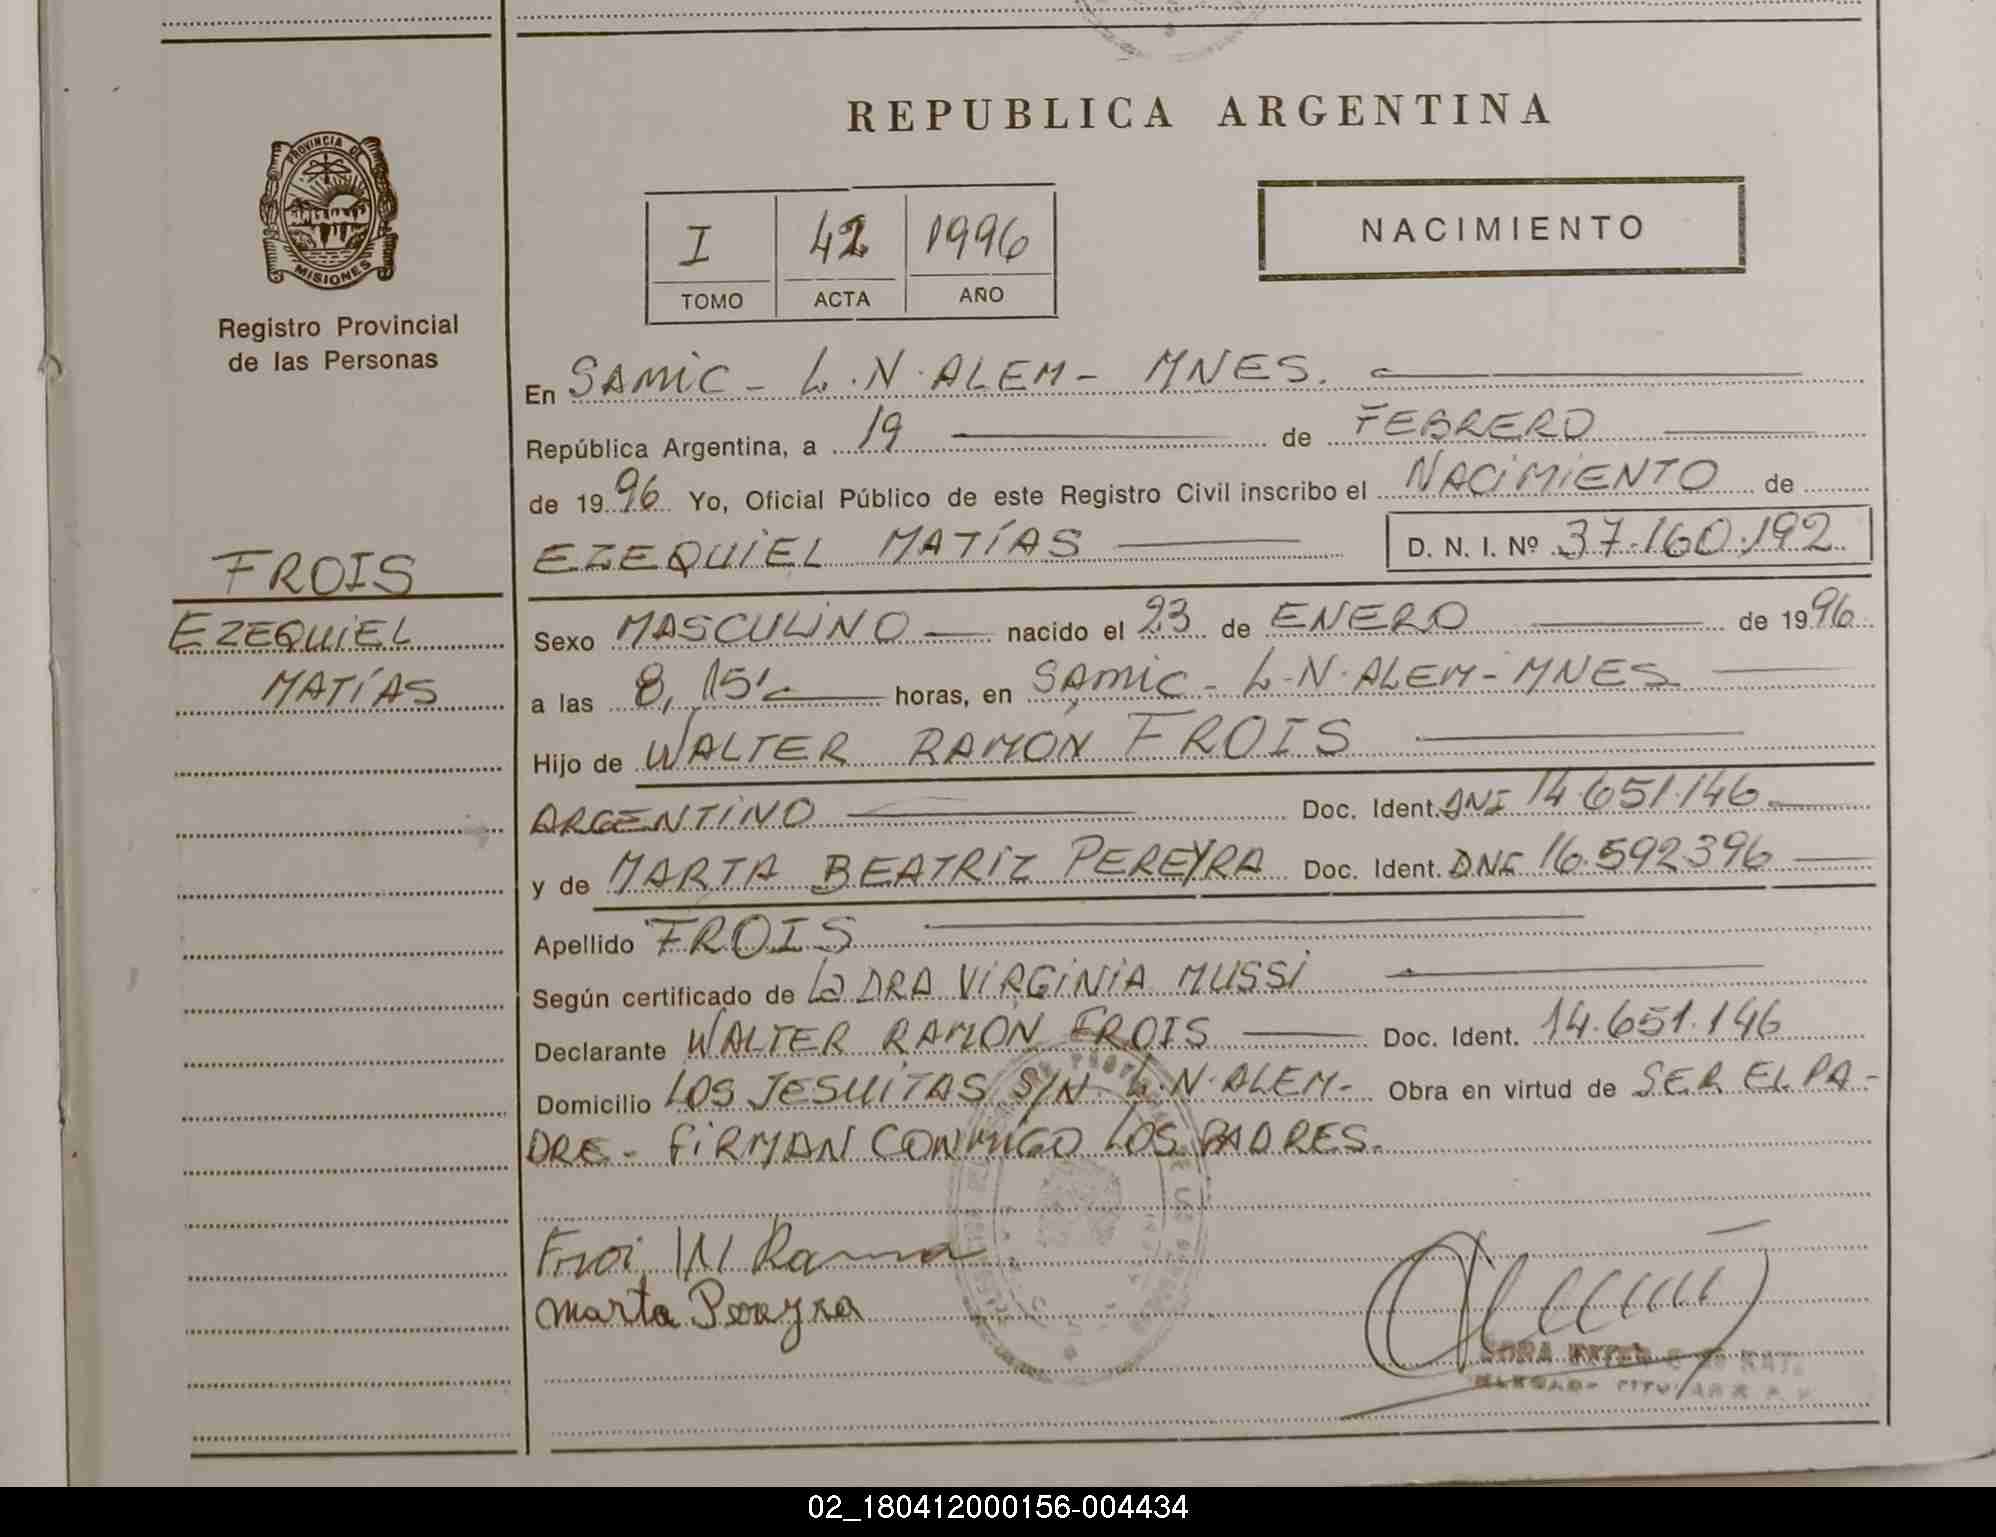 REPUBLICA ARGENTINA
PROVINCIA DE
MISIONES
Registro Provincial
de las Personas
I 42 1996
TOMO ACTA AÑO
NACIMIENTO
En SAMIC - L.N. ALEM - MNES.
República Argentina, a 19 de FEBRERO
de 1996 Yo, Oficial Público de este Registro Civil inscribo el NACIMIENTO de
EZEQUIEL MATÍAS D. N. I. Nº 37.160.192
FROIS
EZEQUIEL
MATÍAS
Sexo MASCULINO nacido el 23 de ENERO de 1996
a las 8,15' horas, en SAMIC - L.N. ALEM - MNES
Hijo de WALTER RAMÓN FROIS
ARGENTINO Doc. Ident. DNI 14.651.146
y de MARTA BEATRIZ PEREYRA Doc. Ident. DNI 16.592.396
Apellido FROIS
Según certificado de La DRA VIRGINIA MUSSI
Declarante WALTER RAMÓN FROIS Doc. Ident. 14.651.146
Domicilio LOS JESUITAS S/N L.N. ALEM - Obra en virtud de SER EL PA-
DRE - FIRMAN CONMIGO LOS PADRES.
Froi W Ramon
Marta Pereyra
02_180412000156-004434